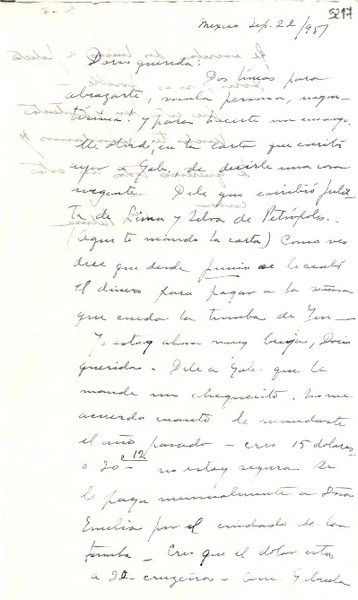 5217
Mexico Sep. 22/951
Doris querida:
Dos líneas para
abrazarte, mucha persona,
y para hacerte un encargo.
Me olvidé, en la carta que escribí
ayer a Gab. de decirle una cosa
urgente. Dile que escribió Julie-
ta de Lima y Zilva de Petrópolis.
(Aquí te mando la carta) Como ves
dice que desde junio se le acabó
el dinero para pagar a la señora
que cuida la tumba de Yin—
Yo estoy ahora muy bruja, Doris
querida. Dile a Gab. que le
mande un chequecito. No me
acuerdo cuanto le mandaste
el año pasado — creo 15 dólares
o 20 — o 12 no estoy segura. Se
le paga mensualmente a Doña
Emilia por el cuidado de la
tumba — Creo que el dolar esta
a 32 cruzeiros —